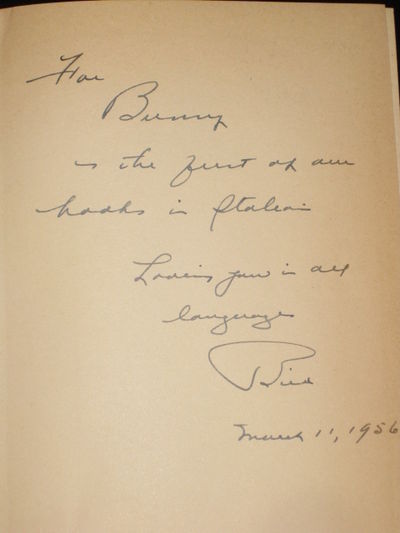 For
Bunny
is the first of our
books in Italian
Loving you in all
languages
Bill
March 11, 1956